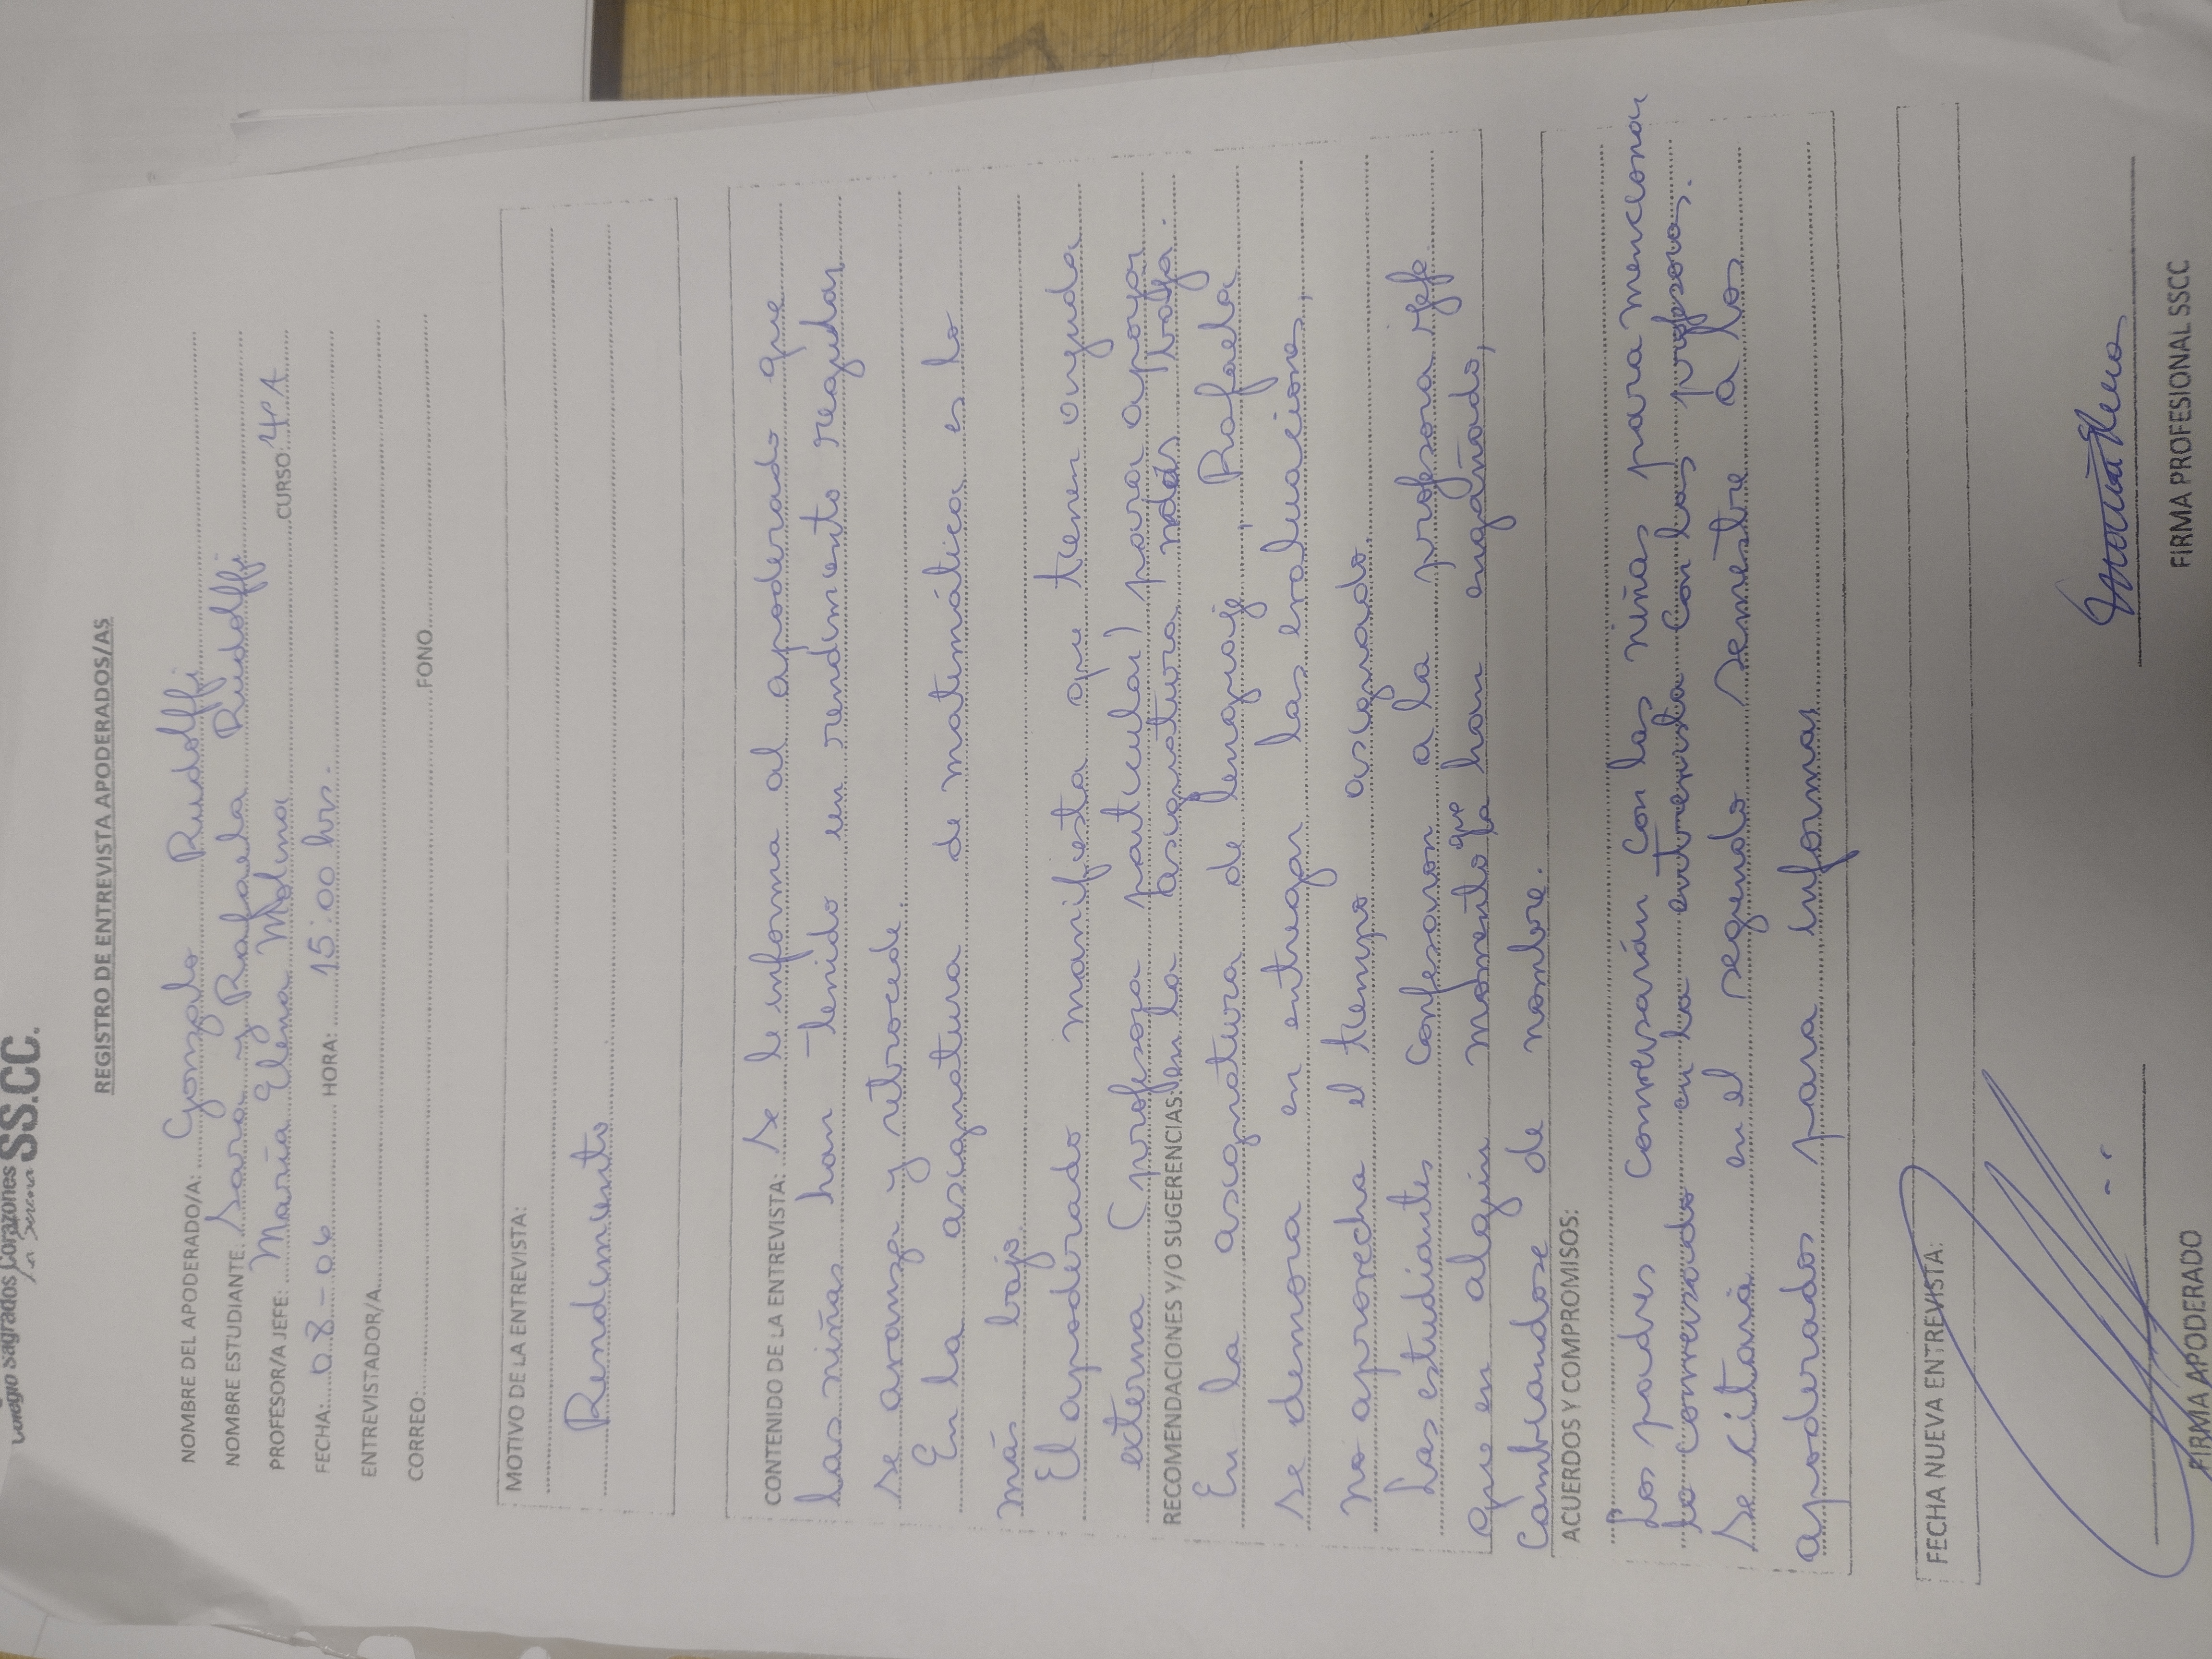 Colegio Sagrados Corazones SS.CC.
La Serena
REGISTRO DE ENTREVISTA APODERADOS/AS
NOMBRE DEL APODERADO/A: Gonzalo Rudolffi
NOMBRE ESTUDIANTE: Sara y Rafaela Rudolffi
PROFESOR/A JEFE: María Elena Molina CURSO: 4°A
FECHA: 08-06 HORA: 15:00 hrs.
ENTREVISTADOR/A
CORREO: FONO
MOTIVO DE LA ENTREVISTA:
Rendimiento
CONTENIDO DE LA ENTREVISTA: Se le informa al apoderado que
las niñas han tenido un rendimiento regular,
se avanza y retrocede.
En la asignatura de matemática es lo
más bajo.
El apoderado manifiesta que tienen ayuda
externa (profesora particular) para apoyar
RECOMENDACIONES Y/O SUGERENCIAS: en la asignatura más baja.
En la asignatura de lenguaje, Rafaela
se demora en entregar las evaluaciones,
no aprovecha el tiempo asignado.
Las estudiantes confesaron a la profesora jefe
que en algún momento que la han engañado,
cambiandose de nombre.
ACUERDOS Y COMPROMISOS:
Los padres conversarán con las niñas para mencionar
lo conversado en la entrevista con las profesoras.
Se citará en el segundo semestre a los
apoderados para informar
FECHA NUEVA ENTREVISTA:
FIRMA APODERADO
FIRMA PROFESIONAL SSCC